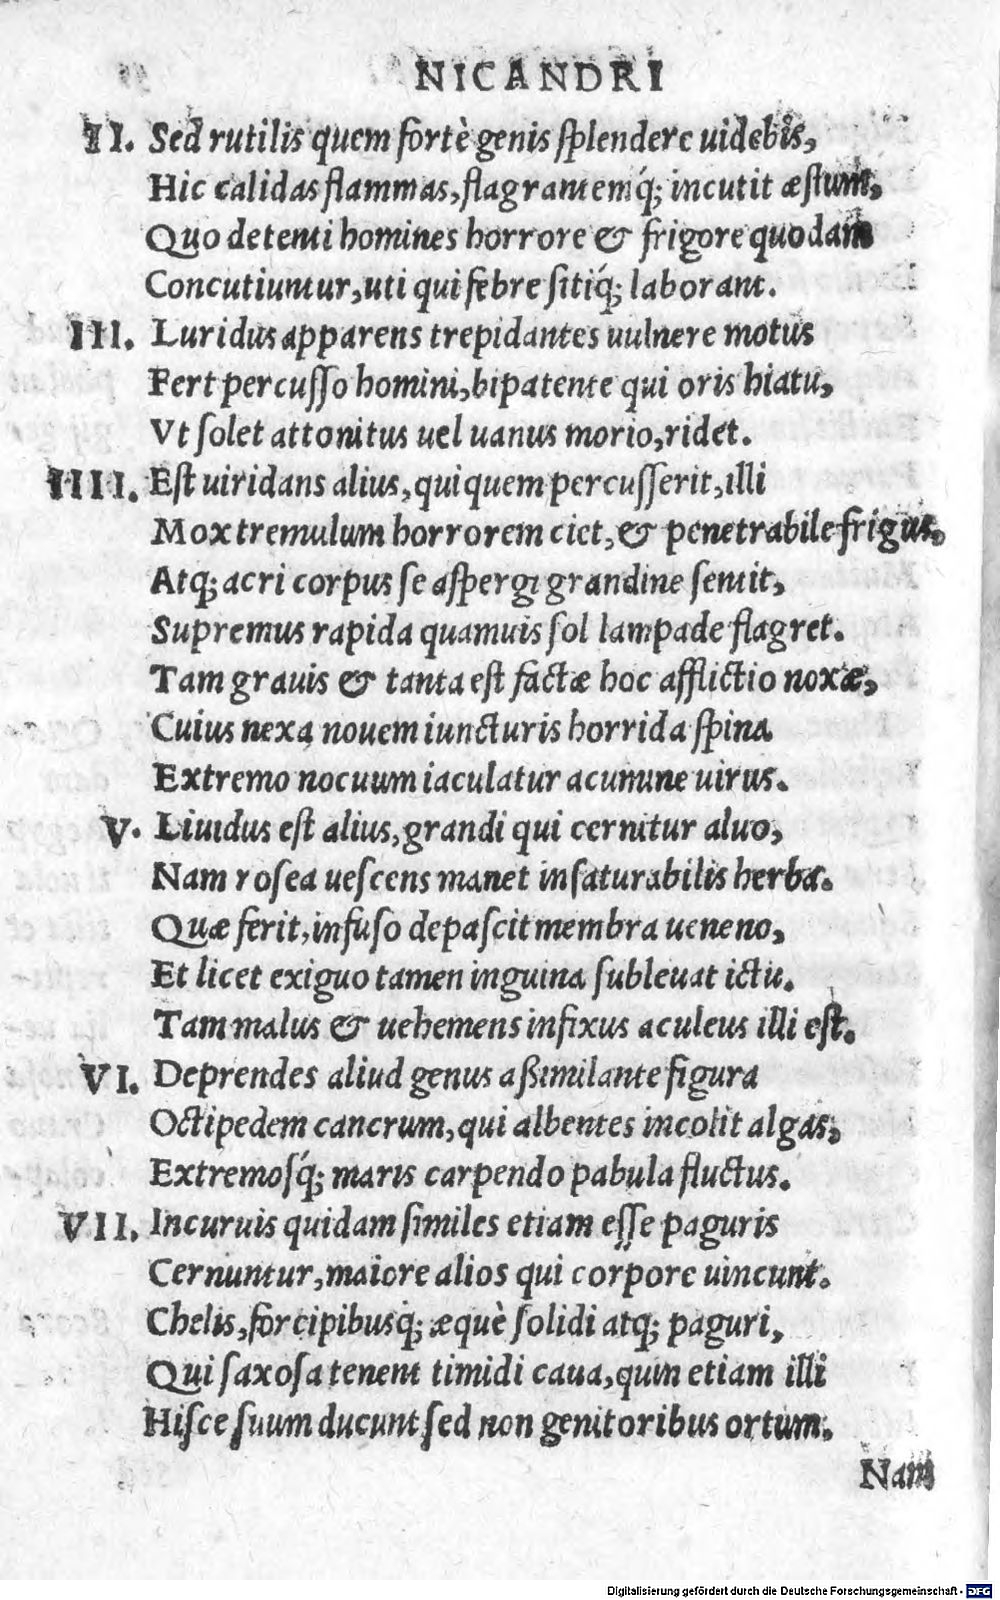 NICANDRI
II. Sed rutilis quem fortè genis ſplendere uidebis,
Hic calidas flammas, flagrantemq́; incutit æſtum,
Quo detenti homines horrore & frigore quodam
Concutiuntur, uti qui febre ſitiq́; laborant.
III. Luridus apparens trepidantes uulnere motus
Fert percuſſo homini, bipatente qui oris hiatu,
Vt ſolet attonitus uel uanus morio, ridet.
IIII. Eſt uiridans alius, qui quem percuſſerit, illi
Mox tremulum horrorem ciet, & penetrabile frigus,
Atq; acri corpus ſe aſpergi grandine ſentit,
Supremus rapida quamuis ſol lampade flagret.
Tam grauis & tanta eſt factæ hoc afflictio noxæ,
Cuius nexa nouem iuncturis horrida ſpina
Extremo nocuum iaculatur acumine uirus.
V. Liuidus eſt alius, grandi qui cernitur aluo,
Nam roſea ueſcens manet inſaturabilis herba.
Quæ ferit, infuſo depaſcit membra ueneno,
Et licet exiguo tamen inguina ſubleuat ictu.
Tam malus & uehemens infixus aculeus illi eſt.
VI. Deprendes aliud genus aßimilante figura
Octipedem cancrum, qui albentes incolit algas,
Extremoſq́; maris carpendo pabula fluctus.
VII. Incuruis quidam ſimiles etiam eſſe paguris
Cernuntur, maiore alios qui corpore uincunt.
Chelis, forcipibusq́; æquè ſolidi atq; paguri,
Qui ſaxoſa tenent timidi caua, quin etiam illi
Hiſce ſuum ducunt ſed non genitoribus ortum.
Nam
Digitalisierung gefördert durch die Deutsche Forschungsgemeinschaft - DFG